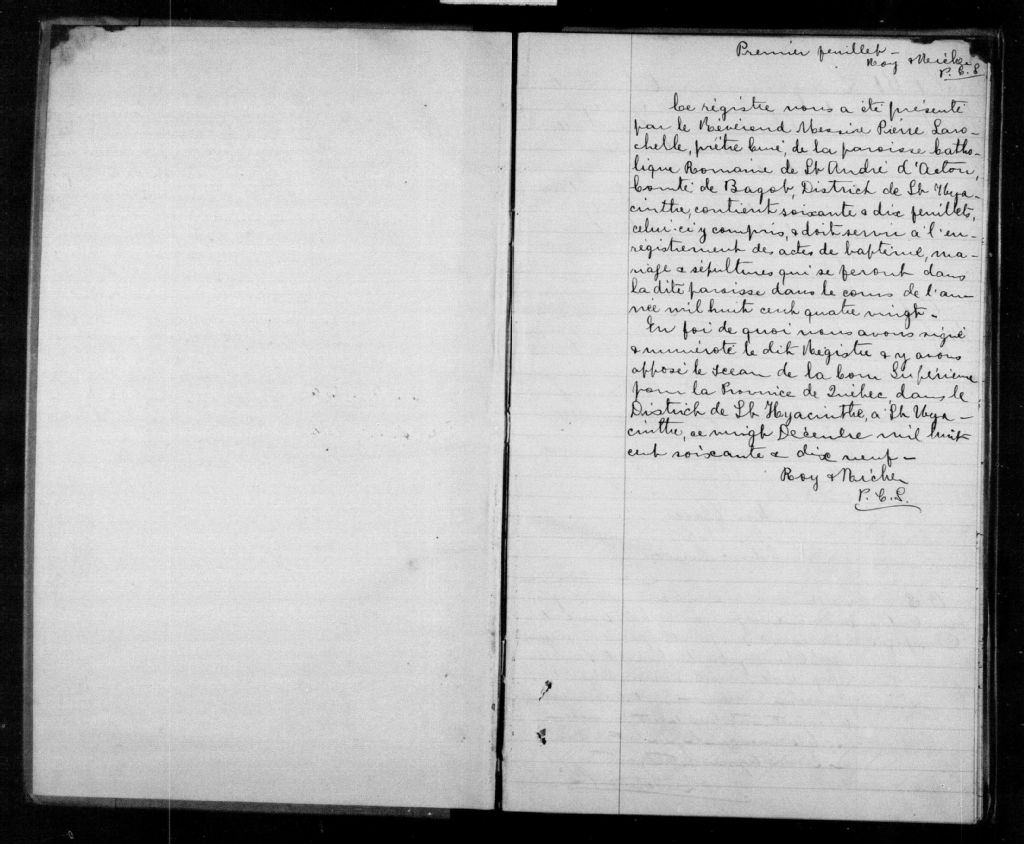 Premier feuillet —
Roy & Michon
P. C. S.
Ce régistre nous a été présenté
par le Révérend Messire Pierre Laro-
chelle, prêtre Curé, de la paroisse Catho-
lique Romaine de St André d'Acton,
Comté de Bagot, District de St Hya-
cinthe, contient soixante & dix feuillets,
celui-ci y compris, & doit servir à l'en-
régistrement des actes de baptême, ma-
riage & sépultures qui se feront dans
la dite paroisse dans le cours de l'an-
née mil huit cent quatre vingt —
En foi de quoi nous avons signé
& numéroté le dit Régistre & y avons
apposé le sceau de la Cour Supérieure
pour la Province de Québec, dans le
District de St Hyacinthe, à St Hya-
cinthe, ce vingt Décembre mil huit
cent soixante & dix neuf —
Roy &
P. C. S.